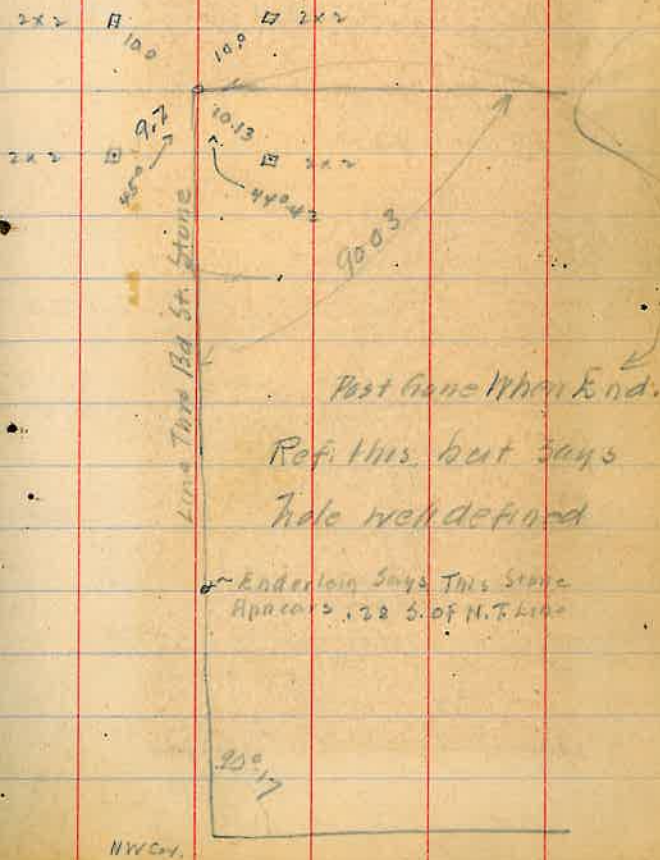 2x2
2x2
10.0
10.0
9.7
10.13
2x2
2x2
45°
44°42
90 03
Line Thro Bd St. Stone
Post Gone When End.
Ref. this, but says
hole well defined
Enderlein Says This Stone
Appears .28 S. of N.T. Line
NW Cor.